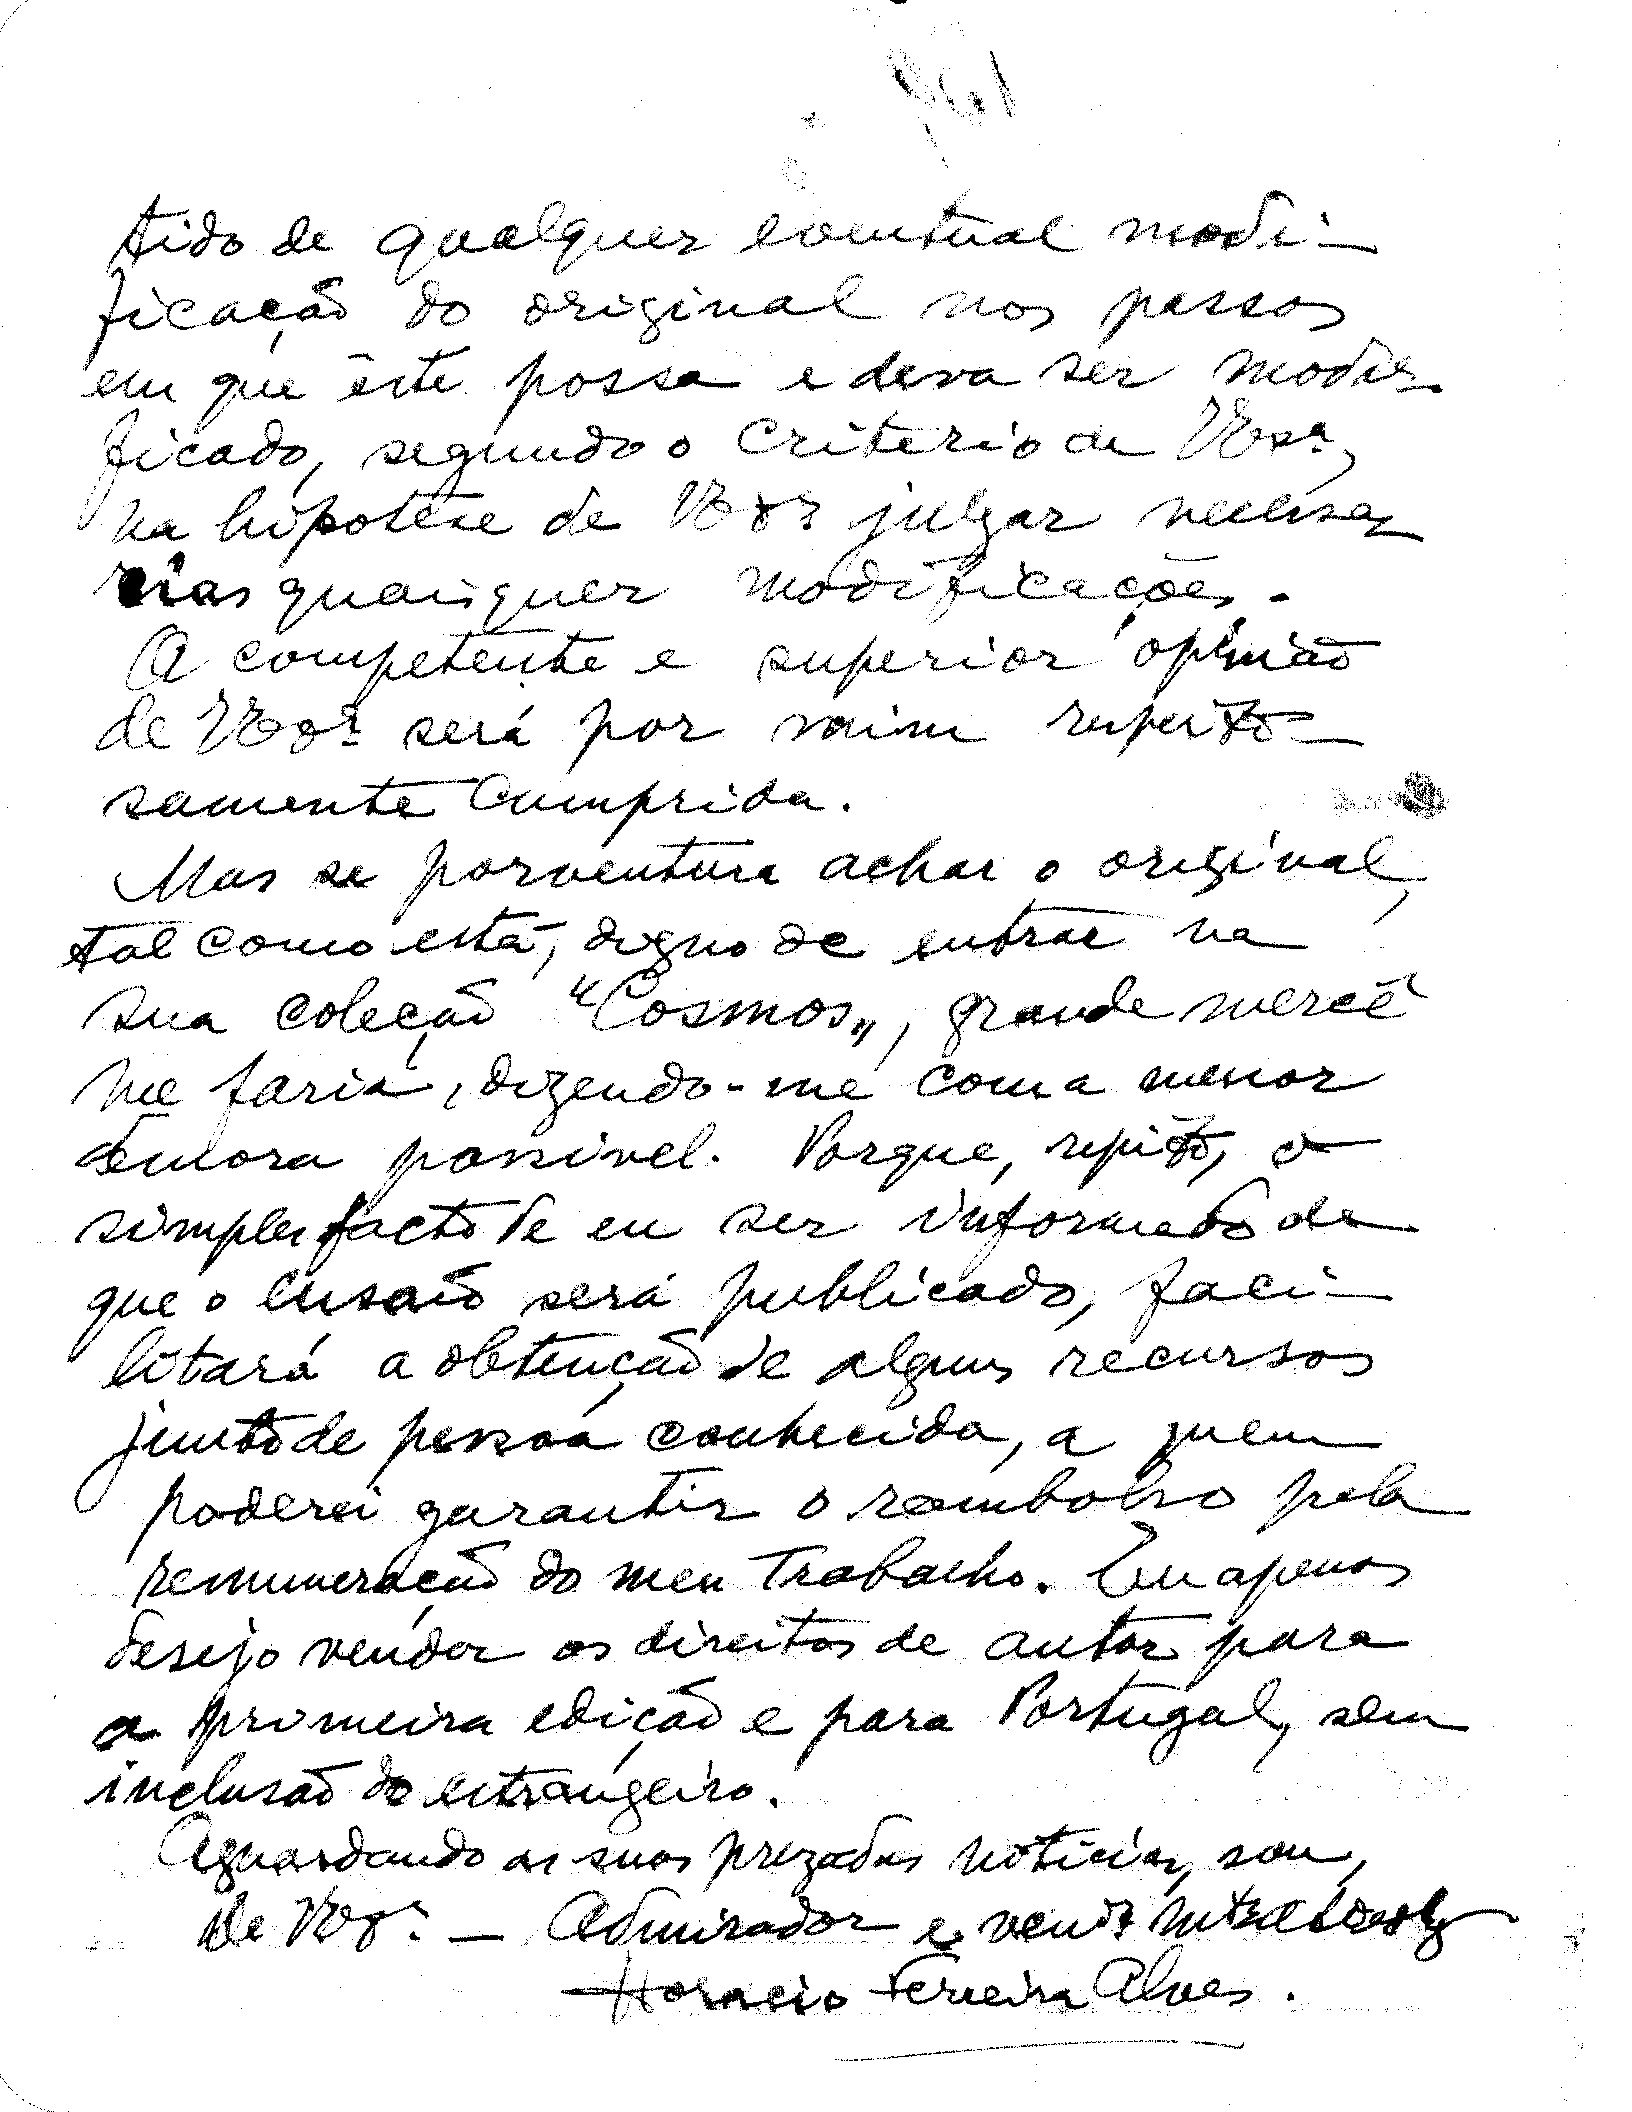 tido de qualquer eventual modi-
ficação do original nos passos
em que êste possa e deva ser modi-
ficado, segundo o criterio de VExª,
na hipotese de VExª julgar necessa-
rias quaisquer modificações.
A competente e superior opinião
de VExª será por mim respeito-
samente cumprida.
Mas se porventura achar o original,
tal como está, digno de entrar na
sua coleção "Cosmos", grande mercê
me faria, dizendo-me com a menor
demora possivel. Porque, repito, o
simples facto de eu ser informado de
que o ensaio será publicado, faci-
litará a obtenção de alguns recursos
junto de pessoa conhecida, a quem
poderei garantir o reembolso pela
remuneração do meu trabalho. Eu apenas
desejo vender os direitos de autor para
a primeira edição e para Portugal, sem
inclusão do estrangeiro.
Aguardando as suas prezadas noticias, sou,
de VExª — Admirador e
Horacio Ferreira Alves.